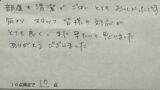 部屋も清潔で ごはん とても おいしかったです
気がつく スタッフ 皆様の 対応が
とても良く、また来たいと思いました
ありがとう ございました
10点満点で 10 点